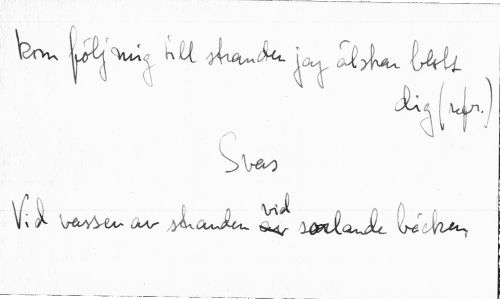 kom följ mig till stranden jag älskar blott
dig (refr.)
Svar
Vid vassen av stranden vid sorlande bäcken